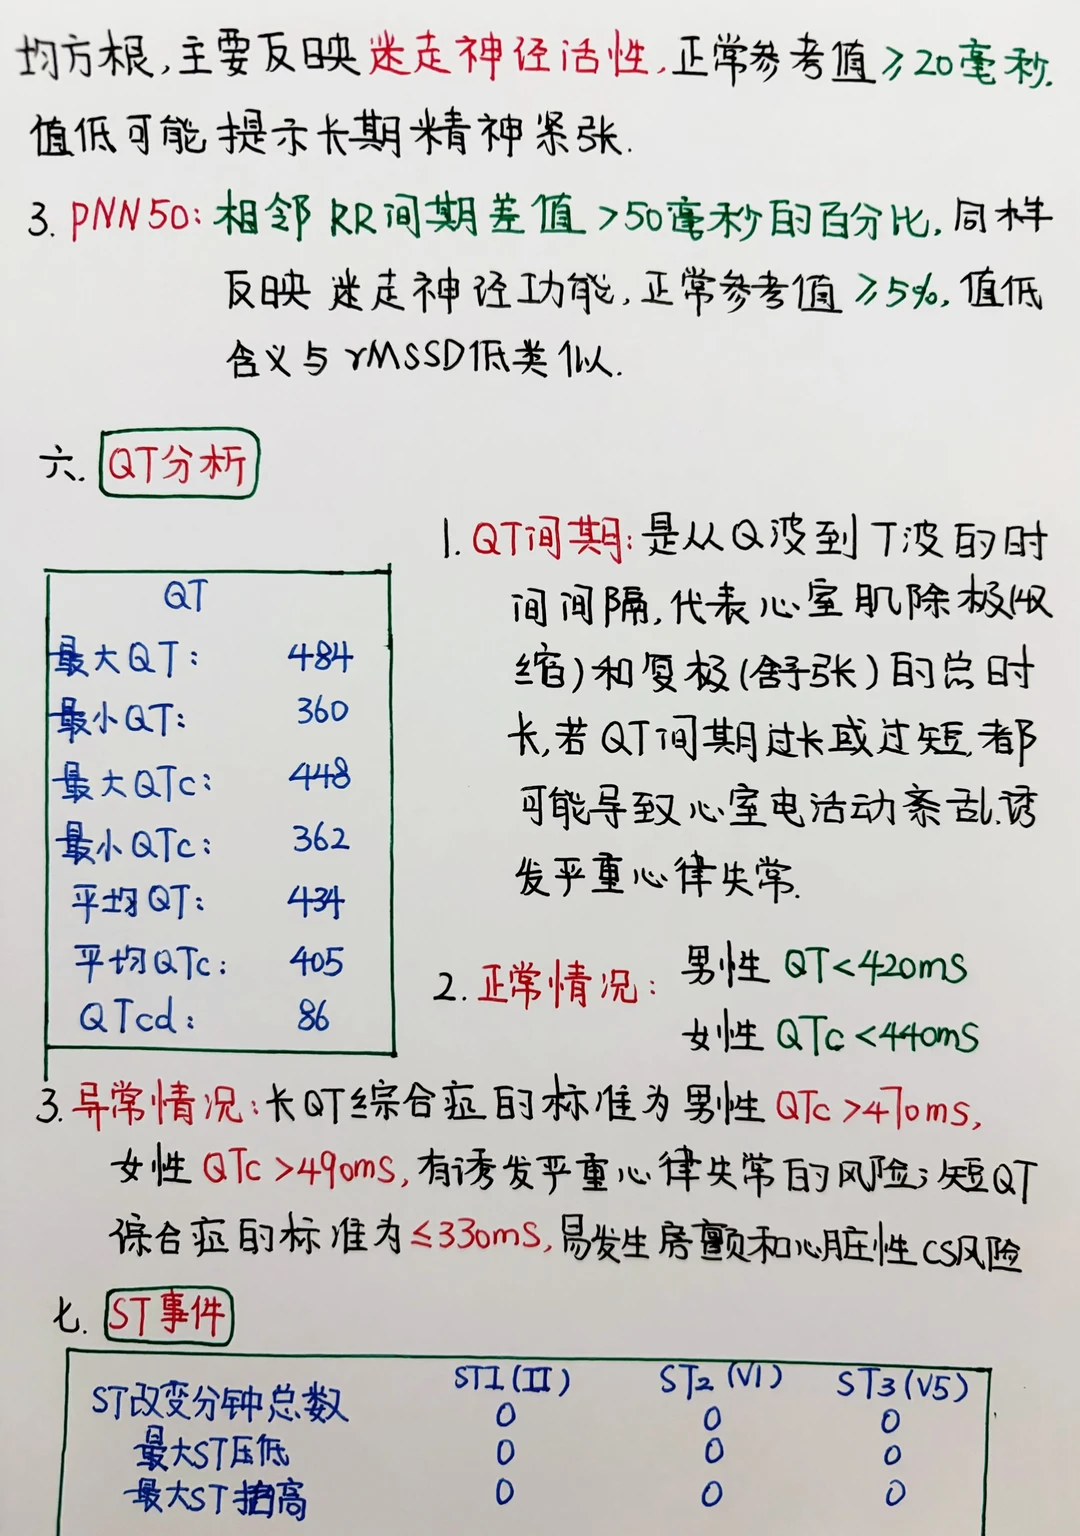 均方根,主要反映迷走神经活性,正常参考值≥20毫秒.
值低可能提示长期精神紧张.
3. PNN50: 相邻RR间期差值>50毫秒的百分比,同样
反映迷走神经功能,正常参考值≥5%,值低
含义与rMSSD低类似.
六. QT分析
QT
最大QT: 484
最小QT: 360
最大QTc: 448
最小QTc: 362
平均QT: 434
平均QTc: 405
QTcd: 86
1. QT间期:是从Q波到T波的时
间间隔,代表心室肌除极(收
缩)和复极(舒张)的总时
长,若QT间期过长或过短,都
可能导致心室电活动紊乱.诱
发严重心律失常.
2. 正常情况: 男性 QT<420mS
女性 QTc<440mS
3. 异常情况:长QT综合症的标准为男性 QTc>470ms,
女性 QTc>490mS,有诱发严重心律失常的风险;短QT
综合症的标准为≤330mS,易发生房颤和心脏性CS风险
七. ST事件
ST1(II) ST2(V1) ST3(V5)
ST改变分钟总数 0 0 0
最大ST压低 0 0 0
最大ST抬高 0 0 0